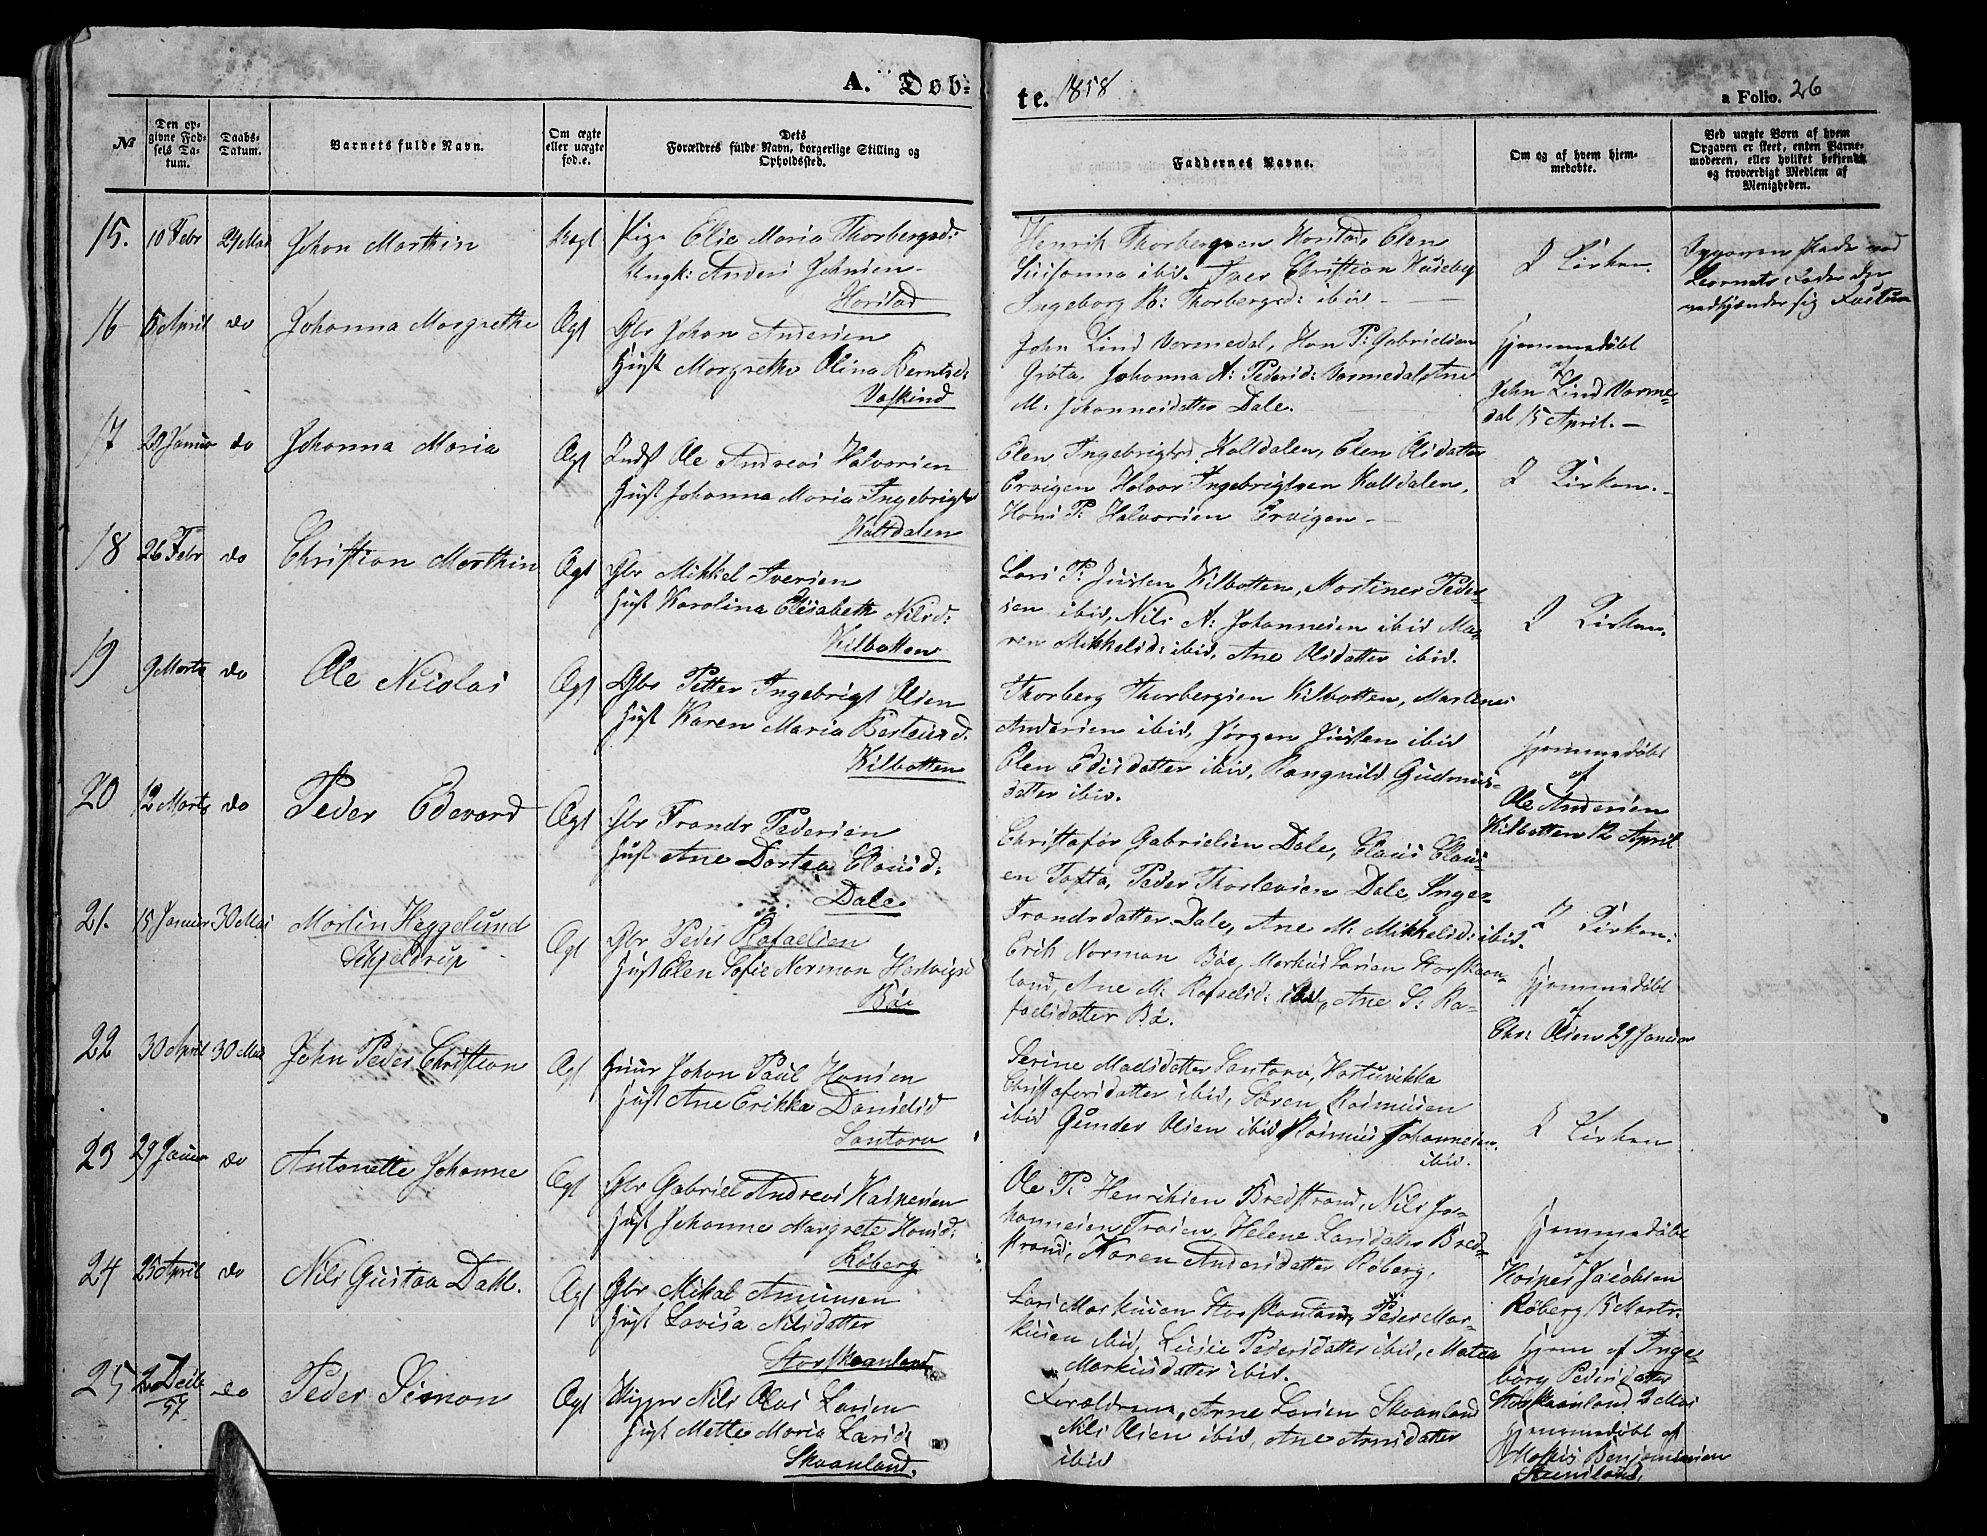 A. Døb-
te. 1858
a Folio. 26
№
Den op-
givne Fød-
sels Da-
tum.
Daabs-
Datum.
Barnets fulde Navn.
Om ægte
eller uægte
fød.e.
Dets
Forældres fulde Navn, borgerlige Stilling og
Opholdssted.
Faddernes Navne.
Om og af hvem hjem-
medøbte.
Ved uægte Børn af hvem
Opgaven er skeet, enten Barne-
moderen, eller hvilket bekjendt
og troværdigt Medlem af
Menigheden.
15. 10 Febr 24 Mai Johan Marthin
Pige Elie Maria Thorbergsd:
Ungk: Anders Johnsen
Horstad
Henrik Thorbergsen Horstad, Elen
Susanna ibid. Iver Christian Huseby
Ingeborg B: Thorbergsd: ibid
I Kirken.
Opgaven skede ved
Barnets Fader der
vedkjender sig
16 5 April do Johanna Margrethe Ægt Gbr Johan Andersen
Hust Margrethe Olina Berntsd:
Vaskind
John Lind Vormedal, Han P: Gabrielsen
Grøta, Johanna A: Pedersd: Vormedal, Ane
M: Johannesdatter Dale.
Hjemmedøbt
af
John Lind Vorme-
dal 15 April.
17 29 Januar do Johanna Maria Ægt Inds Ole Andreas Halvorsen
Hust Johanna Maria Ingebrigtsd
Kaltdalen
Elen Ingebrigtsd. Kaltdalen, Elen Olsdatter
Ervigen Halvor Ingebrigtsen Kaltdalen,
Hans P: Halvorsen Ervigen
I Kirken.
18 26 Febr do Christian Marthin Ægt Gbr Mikkel Iversen
Hust Karolina Elisabeth Nilsd:
Kilbotten
Lars P: Justen Kilbotten, Martines Peder-
sen ibid, Nils A: Johannesen ibid Ma-
ren Mikkelsd: ibid, Ane Olsdatter ibid.
I Kirken.
19 9 Marts do Ole Nicolai Ægt Gbr Petter Ingebrigt Olsen
Hust Karen Maria Berteusd.
Kilbotten
Thorberg Thorbergsen Kilbotten, Martenes
Andersen ibid, Jørgen Justen ibid
Elen Edisdatter ibid, Rangnild Gudmus-
datter ibid.
Hjemmedøbt
af
Ole Andersen
Kilbotten 12 April
20 12 Marts do Peder Edevard Ægt Gbr Trands Pedersen
Hust Ane Dortea Clausd.
Dale
Christaför Gabrielsen Dale, Claus Claus-
en Tofta, Peder Thorlevsen Dale, Inger
Trandsdatter Dale, Ane M: Mikkelsd: ibid.
I Kirken.
21. 15 Januar 30 Mai Martin Heggelund
Schjeldrup
Ægt Gbr Peder Rafaelsen
Hust Elen Sofie Norman Hedvigsd
Bøe
Erik Norman Bøe, Markus Larsen Storskaan-
land, Ane M: Rafaelsd: ibid, Ane S: Ra-
faelsdatter Bø.
Hjemmedøbt
af
Chr: Olsen 29 Januar
22 30 April 30 Mai John Peder Christian Ægt Huur Johan Paul Hansen
Hust Ane Erikka Danielsd
Santorv
Serine Madsdatter Santorv, Hartvikka
Christofersdatter ibid, Søren Rasmusen
ibid Gunder Olsen ibid, Rasmus Johannesen
ibid.
I Kirken
23 29 Januar do Antonette Johanne Ægt Gbr Gabriel Andreas Kaspersen
Hust Johanne Margrete Hansd:
Røberg
Ole P: Henriksen Bredstrand, Nils Jo-
hannesen Trasen, Helene Larsdatter Bred-
strand, Karen Andersdatter Røberg,
Hjemmedøbt
af
Kasper Jacobsen
Røberg 15 Marts.
24 25 April do Nils Gustav Dahl. Ægt Gbr Mikal Amunsen
Hust Lovisa Nilsdatter
Storskaanland
Lars Markusen Storskanland, Peder Mar-
kusen ibid, Lusie Pedersdatter ibid, Maten
Markusdatter ibid.
Hjem af Inge-
børg Pedersdatter
Storskaanland 2 Mai
25 2 Decb
57
do Peder Simon Ægt Nils Olai Larsen
Hust Mette Maria Larsd:
Skaanland.
Forældrene, Arne Larsen Skaanland
Nils Olsen ibid, Ane Arnsdatter
ibid
Hjemmedøbt af
Benjaminsen